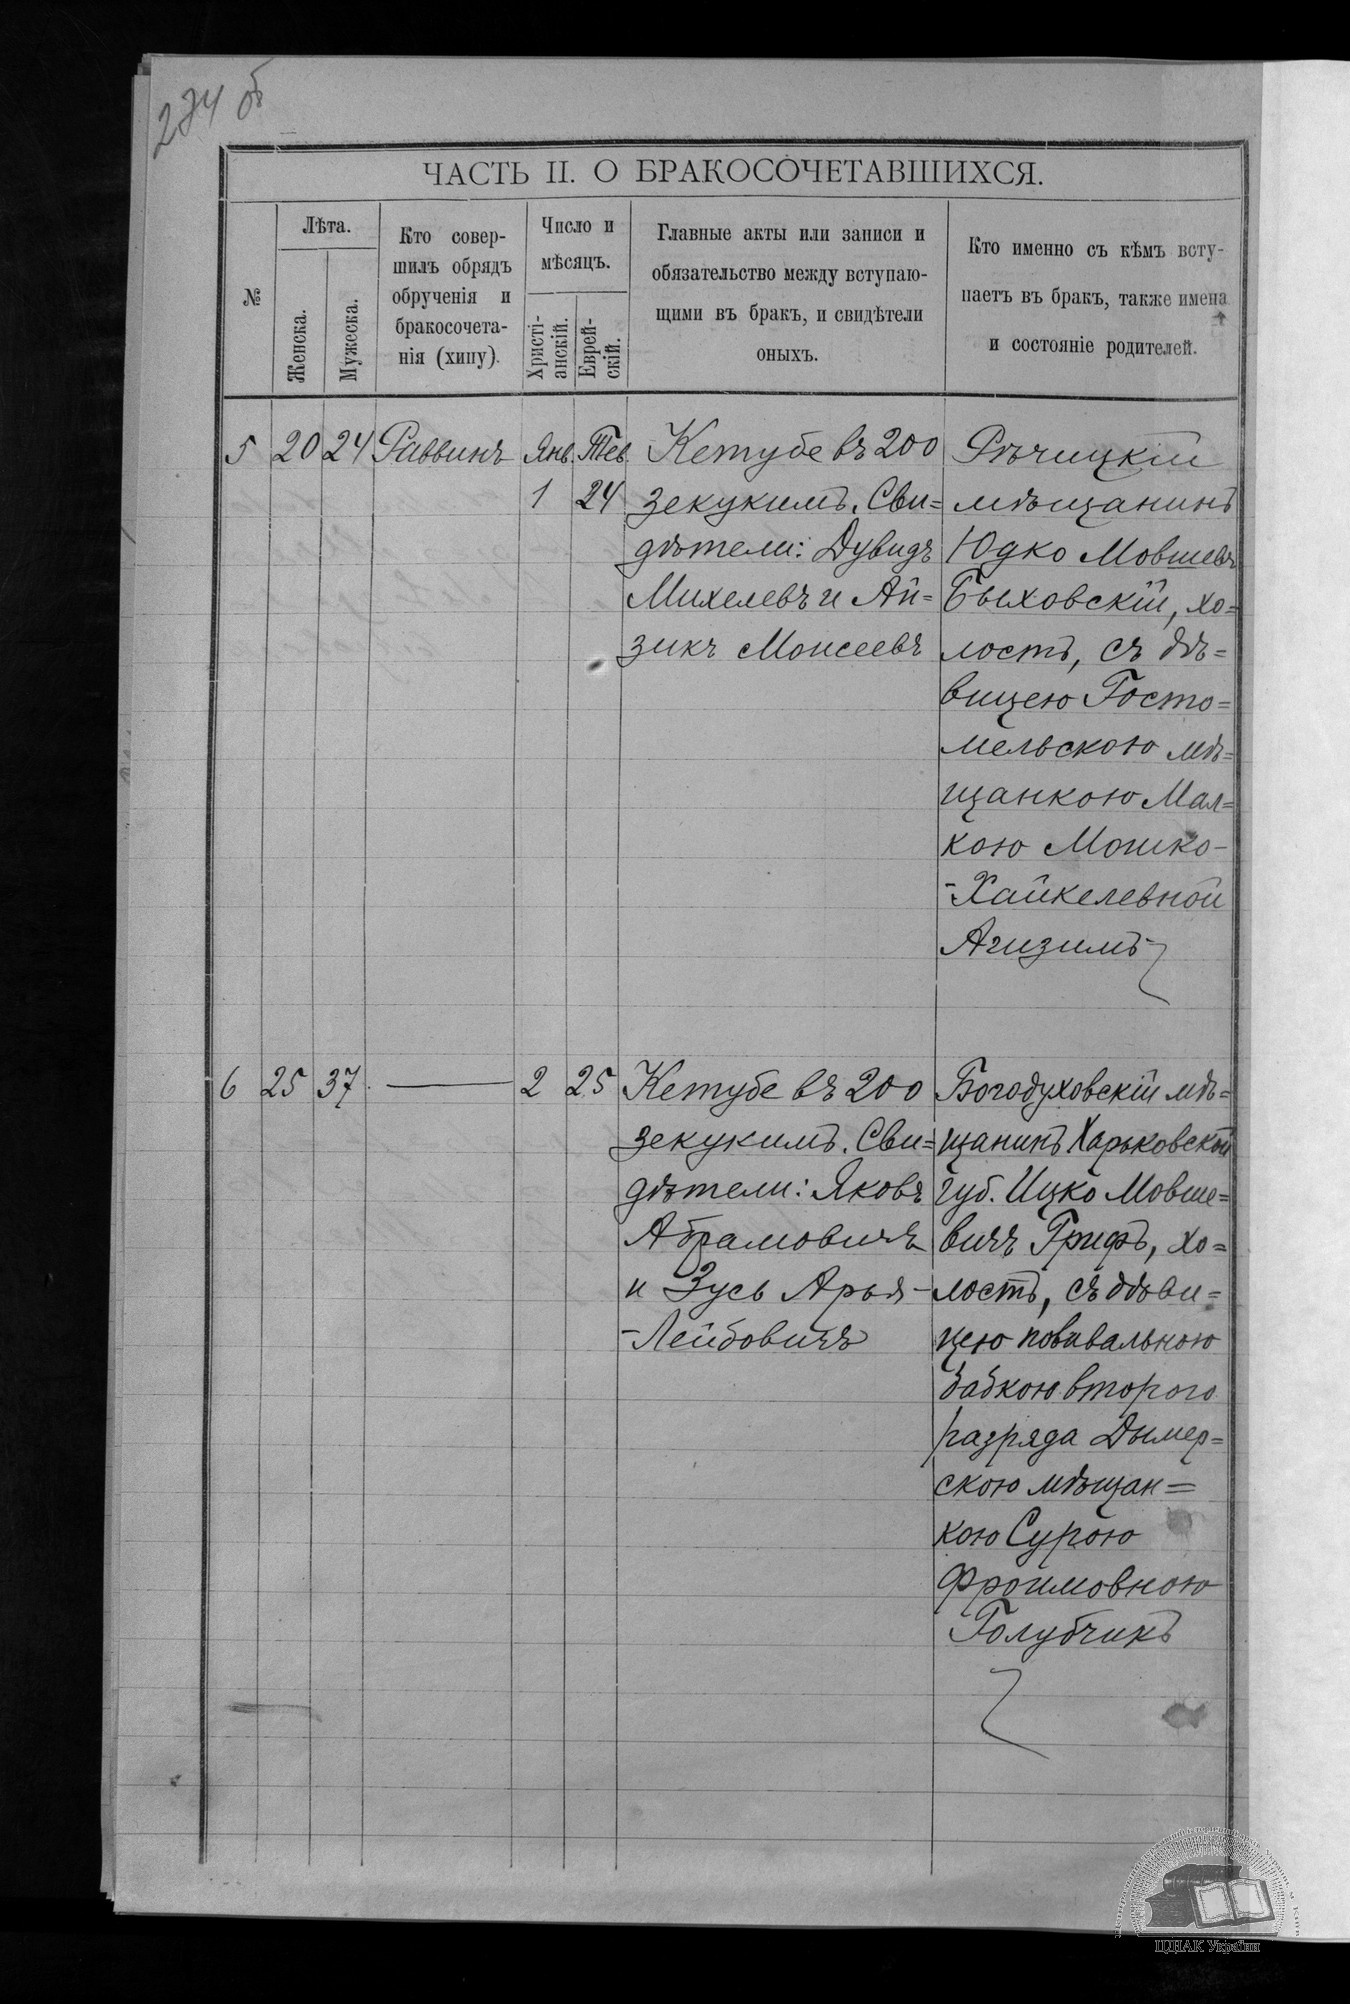 274 об
ЧАСТЬ II. О БРАКОСОЧЕТАВШИХСЯ.
№
Лѣта.
Женска.
Мужеска.
Кто совер-
шилъ обрядъ
обрученія и
бракосочета-
нія (хипу).
Число и
мѣсяцъ.
Христі-
анскій.
Еврей-
скій.
Главные акты или записи и
обязательство между вступаю-
щими въ бракъ, и свидѣтели
оныхъ.
Кто именно съ кѣмъ всту-
паетъ въ бракъ, также имена
и состояніе родителей.
5 20 24 Раввинъ Янв. Тев.
1 24
Кетубе въ 200
зекукимъ. Сви=
дѣтели: Дувидъ
Михелевъ и Ай=
зикъ Моисеевъ
Рѣчицкій
мѣщанинъ
Юдко Мовшевъ
Быховскій, хо=
лостъ, съ дѣ=
вицею Госто=
мельскою мѣ=
щанкою Мал=
кою Мошко-
-Хайкелевной
Агизимъ
6 25 37 — 2 25
Кетубе въ 200
зекукимъ. Сви=
дѣтели: Яковъ
Абрамовичъ
и Зусь Арья-
-Лейбовичъ
Богодуховскій мѣ=
щанинъ Харьковской
губ. Ицко Мовше=
вичъ Грифъ, хо=
лостъ, съ дѣви=
цею повивальною
бабкою второго
разряда Дымер=
скою мѣщан=
кою Сурою
Фроимовною
Голубчикъ
ЦДІАК України